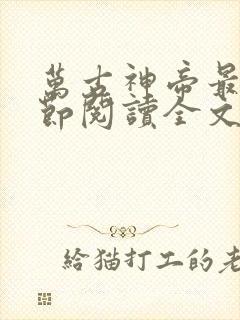 萬古神帝最
節閱讀全文
給猫打工的老